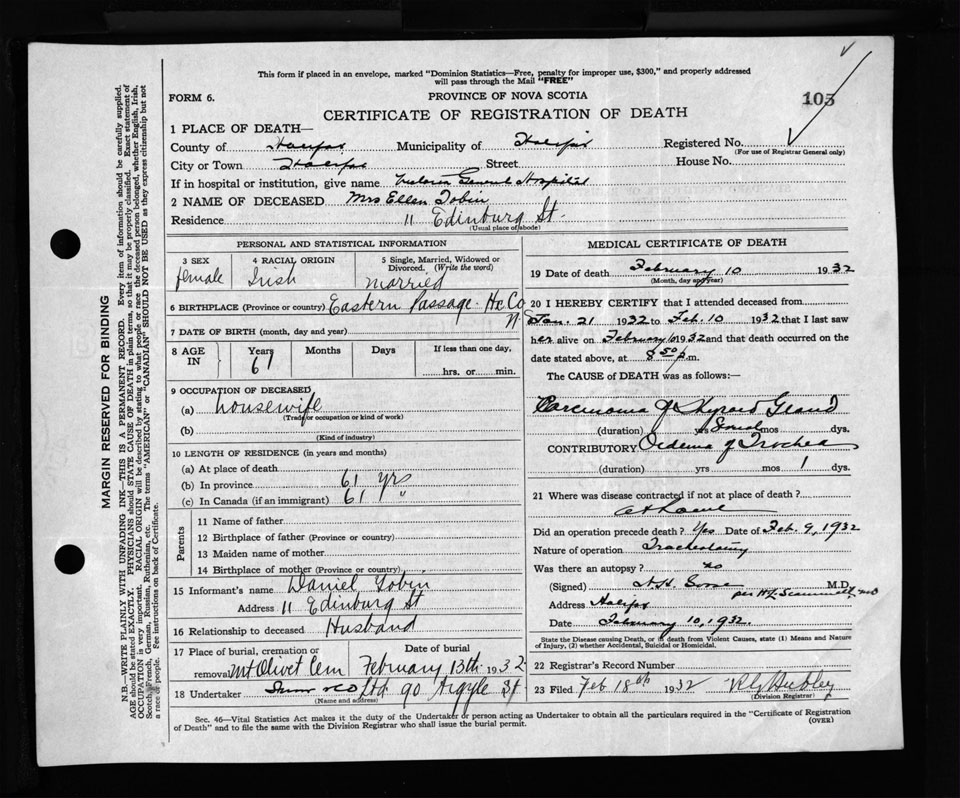 This form if placed in an envelope, marked "Dominion Statistics—Free, penalty for improper use, $300," and properly addressed
will pass through the Mail "FREE"
FORM 6.
PROVINCE OF NOVA SCOTIA
105
CERTIFICATE OF REGISTRATION OF DEATH
1 PLACE OF DEATH—
County of Halifax Municipality of Halifax Registered No.
(For use of Registrar General only)
City or Town Halifax Street House No.
If in hospital or institution, give name Victoria General Hospital
2 NAME OF DECEASED Mrs Ellen Tobin
Residence 11 Edinburg St.
(Usual place of abode)
PERSONAL AND STATISTICAL INFORMATION
3 SEX 4 RACIAL ORIGIN 5 Single, Married, Widowed or
Divorced. (Write the word)
female Irish Married
6 BIRTHPLACE (Province or country) Eastern Passage Hx Co
N
7 DATE OF BIRTH (month, day and year)
8 AGE IN Years Months Days If less than one day,
61 hrs. or min.
9 OCCUPATION OF DECEASED
(a) housewife
(Trade or occupation or kind of work)
(b)
(Kind of industry)
10 LENGTH OF RESIDENCE (in years and months)
(a) At place of death
(b) In province 61 yrs
(c) In Canada (if an immigrant) 61 "
Parents
11 Name of father
12 Birthplace of father (Province or country)
13 Maiden name of mother
14 Birthplace of mother (Province or country)
15 Informant's name Daniel Tobin
Address 11 Edinburg St
16 Relationship to deceased Husband
17 Place of burial, cremation or removal Date of burial
Mt Olivet Cem February 13th 1932
18 Undertaker Snow & Co Ltd 90 Argyle St
(Name and address)
MEDICAL CERTIFICATE OF DEATH
19 Date of death February 10 1932
(Month, day and year)
20 I HEREBY CERTIFY that I attended deceased from
Jan. 21 1932 to Feb. 10 1932 that I last saw
her alive on February 10 1932 and that death occurred on the
date stated above, at 8 50 p.m.
The CAUSE of DEATH was as follows:—
Carcinoma of Thyroid Gland
(duration) yrs Several mos dys.
CONTRIBUTORY Oedema of Trachea
(duration) yrs mos 1 dys.
21 Where was disease contracted if not at place of death?
at home
Did an operation precede death? Yes Date of Feb. 9, 1932
Nature of operation Tracheotomy
Was there an autopsy? no
(Signed) M.D.
per
Address Halifax
Date February 10, 1932.
State the Disease causing Death, or in death from Violent Causes, state (1) Means and Nature
of Injury, (2) whether Accidental, Suicidal or Homicidal.
22 Registrar's Record Number
23 Filed Feb 18th 1932
(Division Registrar)
Sec. 46—Vital Statistics Act makes it the duty of the Undertaker or person acting as Undertaker to obtain all the particulars required in the "Certificate of Registration
of Death" and to file the same with the Division Registrar who shall issue the burial permit.
(OVER)
MARGIN RESERVED FOR BINDING
N.B.—WRITE PLAINLY WITH UNFADING INK—THIS IS A PERMANENT RECORD. Every item of information should be carefully supplied.
AGE should be stated EXACTLY. PHYSICIANS should STATE CAUSE OF DEATH in plain terms, so that it may be properly classified. Exact statement of
OCCUPATION is very important. RACIAL ORIGIN will be described by stating to what people or race the deceased person belonged, whether English, Irish,
Scotch, French, German, Russian, Ruthenian, etc. The terms "AMERICAN" or "CANADIAN" SHOULD NOT BE USED as they express citizenship but not
a race or people. See instructions on back of Certificate.